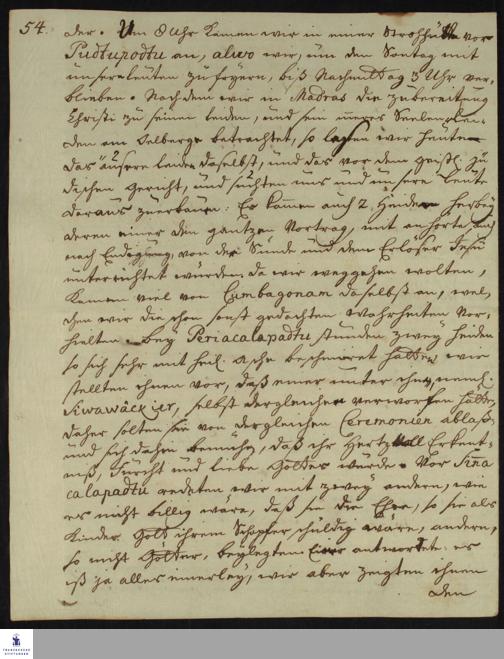 54.
der. Um 8 Uhr kamen wir in einer Strohhütte vor
Pudtupodtu an, alwo wir, um den Sontag mit
unsern Leuten zu feyern, biß Nachmittag 3 Uhr ver-
blieben. Nach dem wir in Madras die Zubereitung
Christi zu seinen Leiden, und sein inneres Seelenlei-
den am Oelberge betrachtet, so lasen wir heute
das äusere Leiden daselbst, und das vor dem geistl. Jü-
dischen Gericht, und suchten uns und unsere Leute
daraus zuerbauen. Es kamen auch 2. Heiden herbey
deren einer den gantzen Vortrag mit anhorte und
nach Endigung von der Sünde und dem Erlöser Jesu
unterrichtet wurden, da wir weggehen wolten,
kamen viel von Cumbagonam daselbst an, wel-
chen wir die schon sonst gedachten Wahrheiten vor-
hielten. Bey Periacalapadtu stunden zwey Heiden
so sich sehr mit heil. Asche beschmieret hatten, wir
stellten ihnen vor, daß einer unter ihnen, neml.
Siwawäckier, selbst dergleichen verworfen hätte,
daher solten sie von dergleichen Ceremonien ablaßen
und sich dahin bemühen, daß ihr Hertz voll Erkent-
niß, Furcht und Liebe Gottes würde. Vor Sinna
calapadtu redeten wir mit zwey andern, wie
es nicht billig wäre, daß sie die Ehre, so sie als
Kinder Gott ihrem Schöpfer schuldig wären, andern,
so nicht Götter, beylegten. Einer antwortete: es
ist ja alles einerley, wir aber zeigten ihnen
den
FRANCKESCHE
STIFTUNGEN